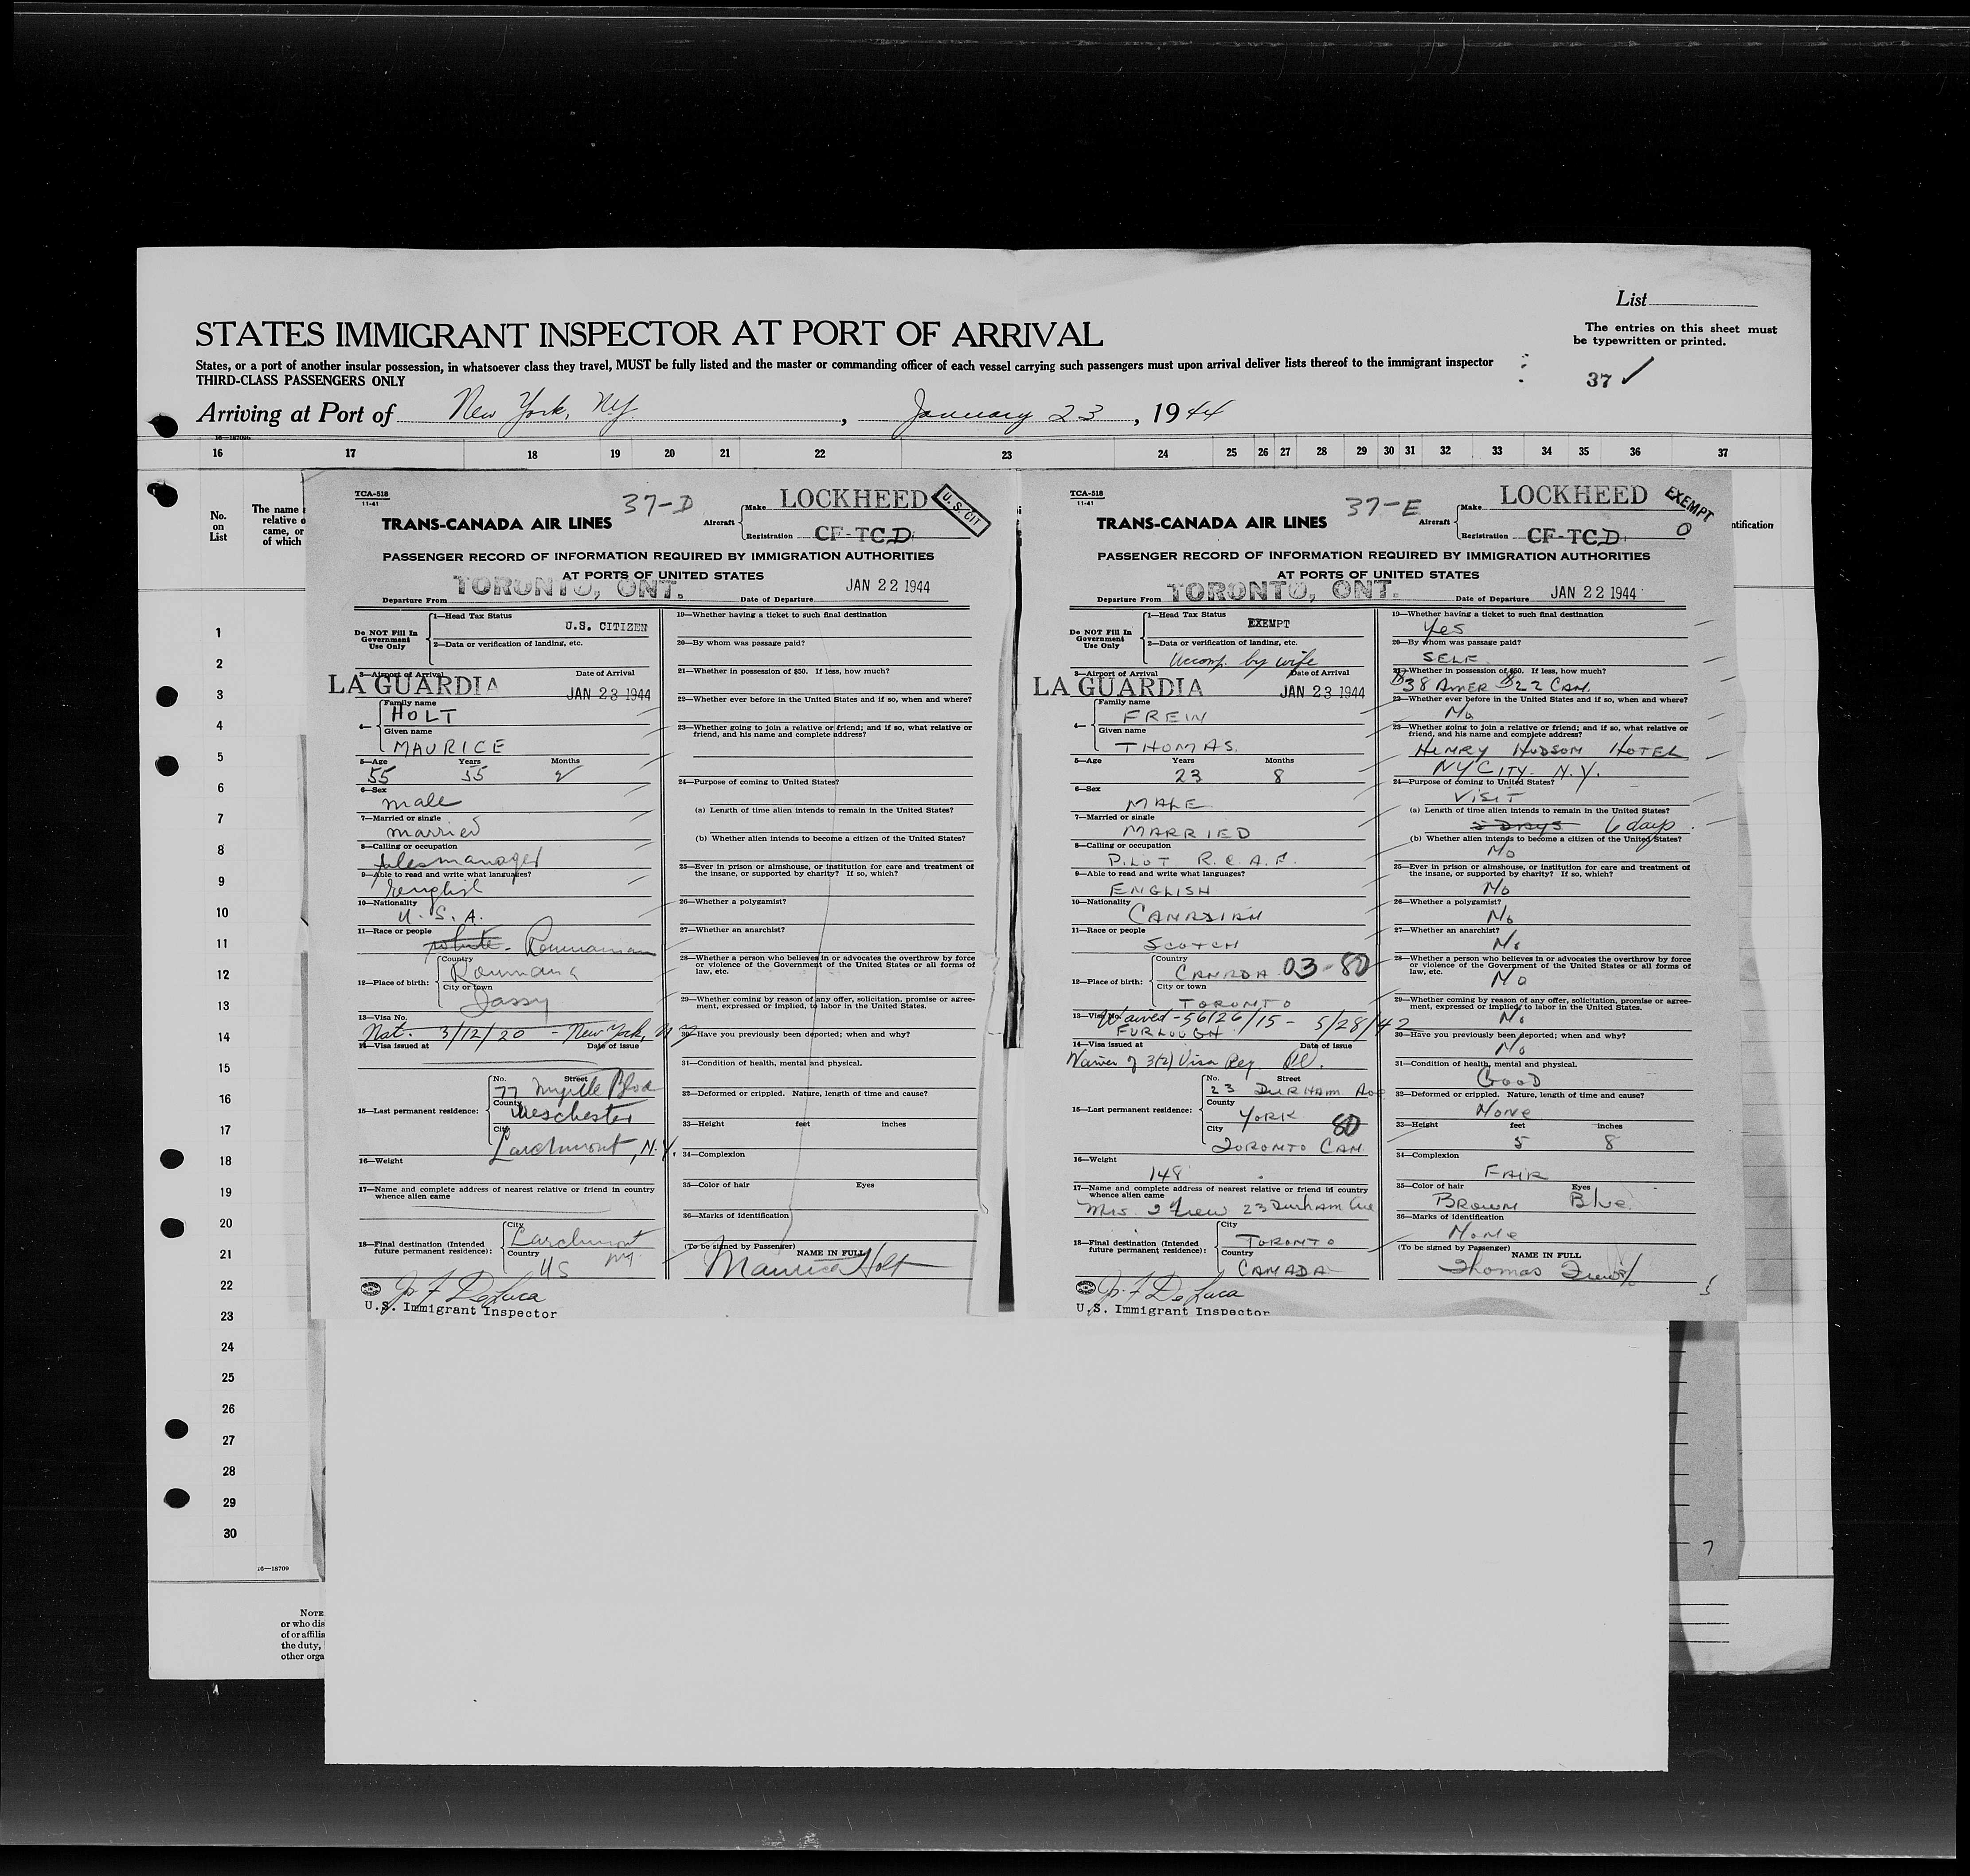 List
STATES IMMIGRANT INSPECTOR AT PORT OF ARRIVAL
The entries on this sheet must
be typewritten or printed.
States, or a port of another insular possession, in whatsoever class they travel, MUST be fully listed and the master or commanding officer of each vessel carrying such passengers must upon arrival deliver lists thereof to the immigrant inspector
THIRD-CLASS PASSENGERS ONLY
37 ✓
Arriving at Port of New York, N.Y., January 23, 1944
16 17 18 19 20 21 22 23 24 25 26 27 28 29 30 31 32 33 34 35 36 37
No.
on
List
The name
relative o
came, or
of which
ntification
1
2
3
4
5
6
7
8
9
10
11
12
13
14
15
16
17
18
19
20
21
22
23
24
25
26
27
28
29
30
16—18709
NOTE
or who dis
of or affilia
the duty,
other orga
TCA-518
11-41
37-D
LOCKHEED
U.S. CIT
TRANS-CANADA AIR LINES
Aircraft
Make
Registration CF-TCD
PASSENGER RECORD OF INFORMATION REQUIRED BY IMMIGRATION AUTHORITIES
AT PORTS OF UNITED STATES
Departure From TORONTO, ONT.
Date of Departure JAN 22 1944
Do NOT Fill In
Government
Use Only
1—Head Tax Status
U.S. CITIZEN
2—Data or verification of landing, etc.
3—Airport of Arrival
Date of Arrival
LA GUARDIA
JAN 23 1944
4—
Family name
HOLT
Given name
MAURICE
5—Age Years Months
55 55 2
6—Sex
male
7—Married or single
married
8—Calling or occupation
9—Able to read and write what languages?
English
10—Nationality
U.S.A.
11—Race or people
white - Roumanian
12—Place of birth:
Country
Roumania
City or town
Jassy
13—Visa No.
Nat. 3/12/20 - New York, N.Y.
14—Visa issued at Date of issue
15—Last permanent residence:
No. Street
77 Myrtle Blvd
County
Weschester
City
Larchmont, N.Y.
16—Weight
17—Name and complete address of nearest relative or friend in country
whence alien came
18—Final destination (Intended
future permanent residence):
City
Larchmont
NY
Country
US
19—Whether having a ticket to such final destination
20—By whom was passage paid?
21—Whether in possession of $50. If less, how much?
22—Whether ever before in the United States and if so, when and where?
23—Whether going to join a relative or friend; and if so, what relative or
friend, and his name and complete address?
24—Purpose of coming to United States?
(a) Length of time alien intends to remain in the United States?
(b) Whether alien intends to become a citizen of the United States?
25—Ever in prison or almshouse, or institution for care and treatment of
the insane, or supported by charity? If so, which?
26—Whether a polygamist?
27—Whether an anarchist?
28—Whether a person who believes in or advocates the overthrow by force
or violence of the Government of the United States or all forms of
law, etc.
29—Whether coming by reason of any offer, solicitation, promise or agree-
ment, expressed or implied, to labor in the United States.
30—Have you previously been deported; when and why?
31—Condition of health, mental and physical.
32—Deformed or crippled. Nature, length of time and cause?
33—Height feet inches
34—Complexion
35—Color of hair Eyes
36—Marks of identification
(To be signed by Passenger)
NAME IN FULL
Maurice Holt
Jos. F. DeLuca
U.S. Immigrant Inspector
TCA-518
11-41
37-E
LOCKHEED
EXEMPT
0
TRANS-CANADA AIR LINES
Aircraft
Make
Registration CF-TCD
PASSENGER RECORD OF INFORMATION REQUIRED BY IMMIGRATION AUTHORITIES
AT PORTS OF UNITED STATES
Departure From TORONTO, ONT.
Date of Departure JAN 22 1944
Do NOT Fill In
Government
Use Only
1—Head Tax Status
EXEMPT
2—Data or verification of landing, etc.
Accomp. by wife
3—Airport of Arrival
Date of Arrival
LA GUARDIA
JAN 23 1944
4—
Family name
FREW
Given name
THOMAS.
5—Age Years Months
23 8
6—Sex
MALE
7—Married or single
MARRIED
8—Calling or occupation
PILOT R.C.A.F.
9—Able to read and write what languages?
ENGLISH
10—Nationality
CANADIAN
11—Race or people
SCOTCH
12—Place of birth:
Country
CANADA 03-80
City or town
TORONTO
13—Visa No.
Waived - 56126/15 - 5/28/42
FURLOUGH
14—Visa issued at Date of issue
Waiver of 3(2) Visa Reg.
15—Last permanent residence:
No. Street
23 DURHAM AVE
County
YORK 80
City
TORONTO CAN.
16—Weight
148
17—Name and complete address of nearest relative or friend in country
whence alien came
Mrs. T Frew 23 Durham Ave
18—Final destination (Intended
future permanent residence):
City
TORONTO
Country
CANADA
19—Whether having a ticket to such final destination
Yes
20—By whom was passage paid?
SELF.
21—Whether in possession of $50. If less, how much?
$38 AMER $22 CAN.
22—Whether ever before in the United States and if so, when and where?
No
23—Whether going to join a relative or friend; and if so, what relative or
friend, and his name and complete address?
HENRY HUDSON HOTEL
NY CITY. N.Y.
24—Purpose of coming to United States?
VISIT
(a) Length of time alien intends to remain in the United States?
5 DAYS 6 days
(b) Whether alien intends to become a citizen of the United States?
No
25—Ever in prison or almshouse, or institution for care and treatment of
the insane, or supported by charity? If so, which?
No
26—Whether a polygamist?
No
27—Whether an anarchist?
No
28—Whether a person who believes in or advocates the overthrow by force
or violence of the Government of the United States or all forms of
law, etc.
No
29—Whether coming by reason of any offer, solicitation, promise or agree-
ment, expressed or implied, to labor in the United States.
No
30—Have you previously been deported; when and why?
No
31—Condition of health, mental and physical.
GOOD
32—Deformed or crippled. Nature, length of time and cause?
None
33—Height feet inches
5 8
34—Complexion
FAIR
35—Color of hair Eyes
BROWN Blue.
36—Marks of identification
None
(To be signed by Passenger)
NAME IN FULL
Thomas Frew
Jos. F. DeLuca
U.S. Immigrant Inspector